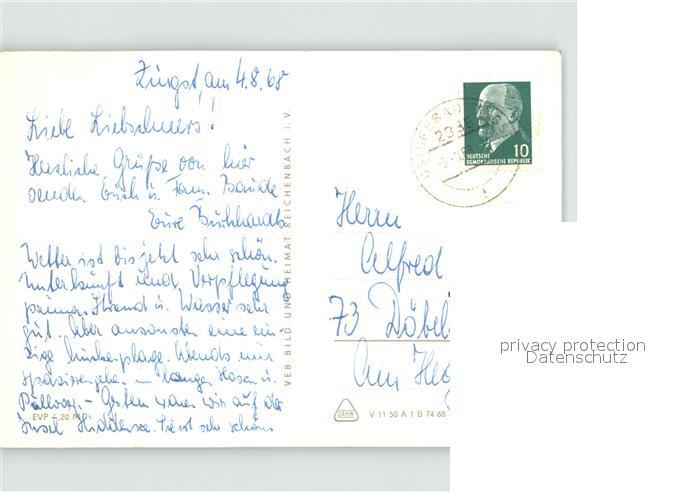 Zingst, am 4.8.68
Liebe Liebschners!
Herzliche Grüße von hier
senden Euch u. Fam. Baude
Eure Burkhardts
Wetter ist bis jetzt sehr schön.
Unterkunft und Verpflegung
prima. Strand u. Wasser sehr
gut. Aber ansonsten eine ein-
zige Mückenplage. Abends nur
spazierengehen in langen Hosen u.
Pullover. - Gestern waren wir auf der
Insel Hiddensee. Sie ist sehr schön
EVP -,20 M
VEB BILD UND HEIMAT REICHENBACH i. V.
10
DEUTSCHE
DEMOKRATISCHE REPUBLIK
OSTSEEBAD
Herrn
Alfred
73 Döbel
Am
V 11 50 A 1 B 74 68
privacy protection
Datenschutz